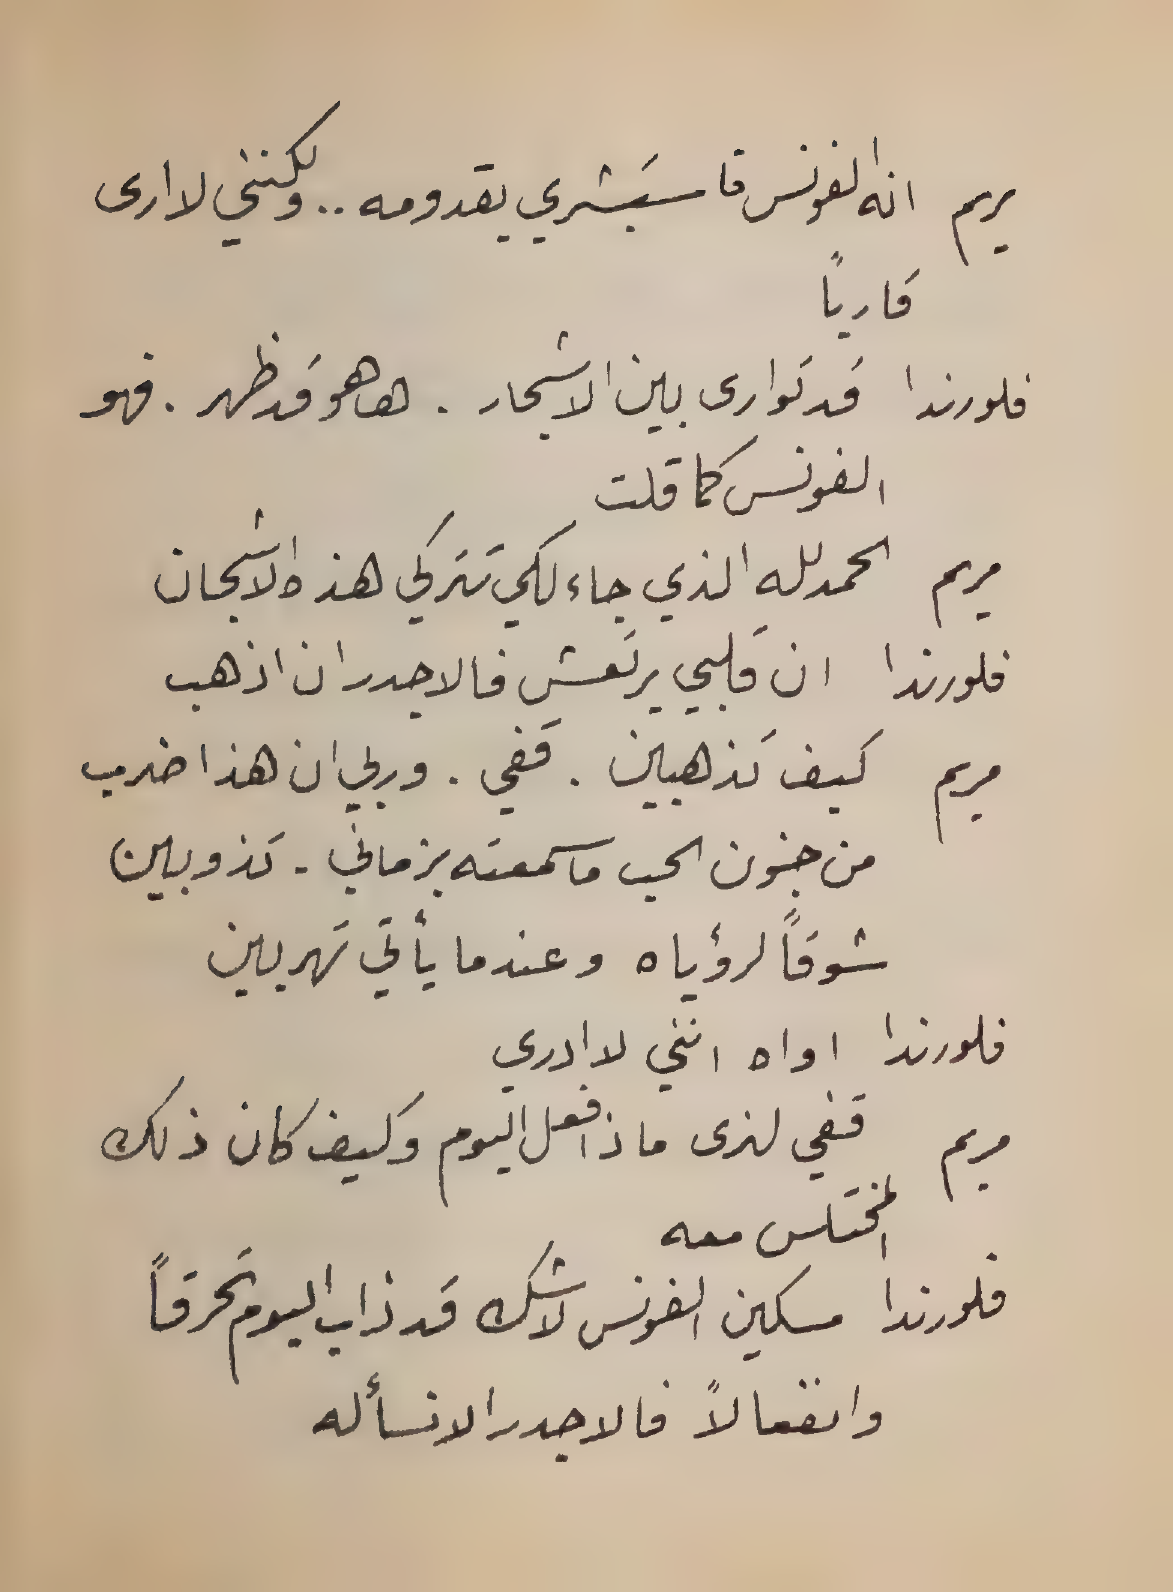 مريم انه الفونس فاستبشري بقدومه .. ولكنني لا ارى
قارباً
فلورندا قد توارى بين الاشجار . هاهو قد ظهر . فهو
الفونس كما قلت
مريم الحمد لله الذي جاء لكي تتركي هذه الاشجان
فلورندا ان قلبي يرتعش فالاجدر ان اذهب
مريم كيف تذهبين . قفي . وربي ان هذا ضرب
من جنون الحب ما سمعته بزماني - تذوبين
شوقاً لرؤياه وعندما يأتي تهربين
فلورندا اواه انني لا ادري
مريم قفي لنرى ماذا فعل اليوم وكيف كان ذلك
المختلس معه
فلورندا مسكين الفونس لاشك قد ذاب اليوم تحرقاً
وانفعالاً فالاجدر الا نسأله